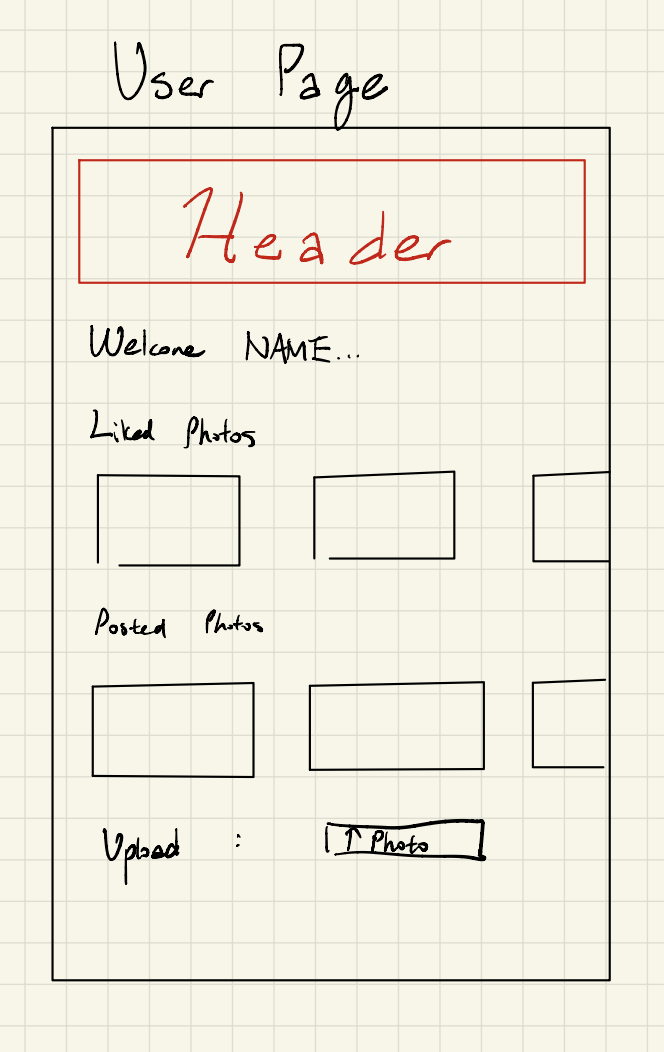 User Page
Header
Welcome NAME...
Liked Photos
Posted Photos
Upload : ↑ Photo